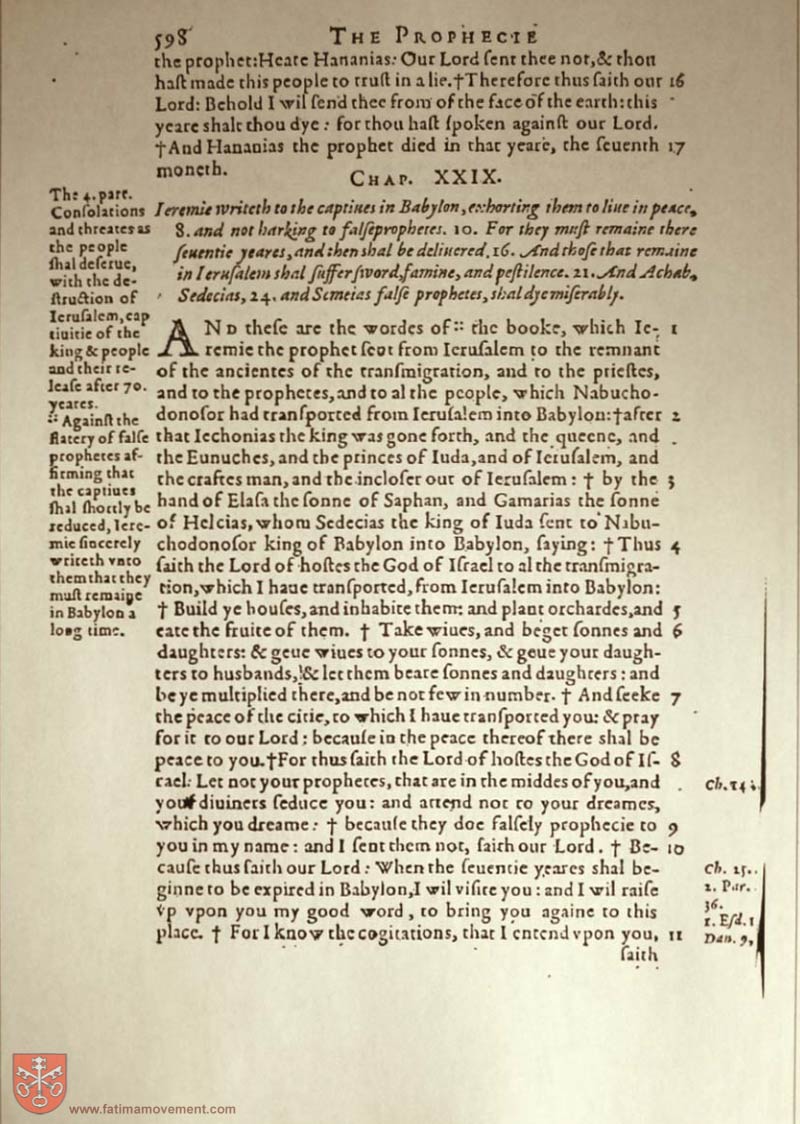 598
THE PROPHECIE
the prophet: Heare Hananias: Our Lord ſent thee not, & thou
haſt made this people to truſt in a lie. †Therefore thus ſaith our 16
Lord: Behold I wil ſend thee from of the face of the earth: this
yeare shalt thou dye: for thou haſt ſpoken againſt our Lord.
†And Hananias the prophet died in that yeare, the ſeuenth 17
moneth.
CHAP. XXIX.
Ieremie writeth to the captiues in Babylon, exhorting them to liue in peace,
8. and not harking to falſeprophetes. 10. For they muſt remaine there
ſeuentie yeares, and then shal be deliuered. 16. And thoſe that remaine
in Ieruſalem shal ſuffer ſword, famine, and peſtilence. 21. And Achab,
Sedecias, 24. and Semeias falſe prophetes, shal dye miſerably.
AND theſe are the wordes of :: the booke, which Ie- 1
remie the prophet ſent from Ieruſalem to the remnant
of the ancientes of the tranſmigration, and to the prieſtes,
and to the prophetes, and to al the people, which Nabucho-
donoſor had tranſported from Ieruſalem into Babylon: †after 2
that Iechonias the king was gone forth, and the queene, and
the Eunuches, and the princes of Iuda, and of Ieruſalem, and
the craftes man, and the incloſer out of Ieruſalem: † by the 3
hand of Elaſa the ſonne of Saphan, and Gamarias the ſonne
of Helcias, whom Sedecias the king of Iuda ſent to Nabu-
chodonoſor king of Babylon into Babylon, ſaying: †Thus 4
ſaith the Lord of hoſtes the God of Iſrael to al the tranſmigra-
tion, which I haue tranſported, from Ieruſalem into Babylon:
† Build ye houſes, and inhabite them: and plant orchardes, and 5
eate the fruite of them. † Take wiues, and beget ſonnes and 6
daughters: & geue wiues to your ſonnes, & geue your daugh-
ters to husbands, & let them beare ſonnes and daughters: and
be ye multiplied there, and be not few in number. † And ſeeke 7
the peace of the citie, to which I haue tranſported you: & pray
for it to our Lord: becauſe in the peace thereof there shal be
peace to you. †For thus ſaith the Lord of hoſtes the God of Iſ- 8
rael: Let not your prophetes, that are in the middes of you, and
your diuiners ſeduce you: and attend not to your dreames,
which you dreame: † becauſe they doe falſely prophecie to 9
you in my name: and I ſent them not, ſaith our Lord. † Be- 10
cauſe thus ſaith our Lord: When the ſeuentie yeares shal be-
ginne to be expired in Babylon, I wil viſite you: and I wil raiſe
vp vpon you my good word, to bring you againe to this
place. † For I know the cogitations, that I entend vpon you, 11
ſaith
The 4. part.
Conſolations
and threates as
the people
ſhal deſerue,
with the de-
ſtruction of
Ieruſalem, cap
tiuitie of the
king & people
and their re-
leaſe after 70.
yeares.
:: Againſt the
flatery of falſe
prophetes af-
firming that
the captiues
ſhal ſhortly be
reduced, Iere-
mie ſincerely
writeth vnto
them that they
muſt remaine
in Babylon a
long time.
Ch. 14
Ch. 25.
2. Par.
36.
1. Eſd. 1
Dan. 9,
www.fatimamovement.com